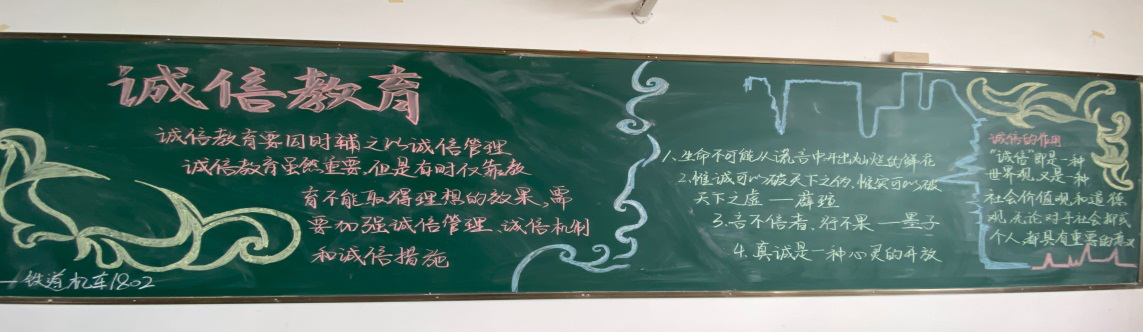 诚信教育
诚信教育要同时辅之以诚信管理
诚信教育虽然重要,但是有时仅靠教
育不能取得理想的效果,需
要加强诚信管理、诚信机制
和诚信措施
——铁道机车1802
1、生命不可能从谎言中开出灿烂的鲜花
2、惟诚可以破天下之伪,惟实可以破
天下之虚——薛瑄
3、言不信者,行不果——墨子
4、真诚是一种心灵的开放
诚信的作用
"诚信"即是一种
世界观,又是一种
社会价值观和道德
观,无论对于社会抑或
个人,都具有重要的意义